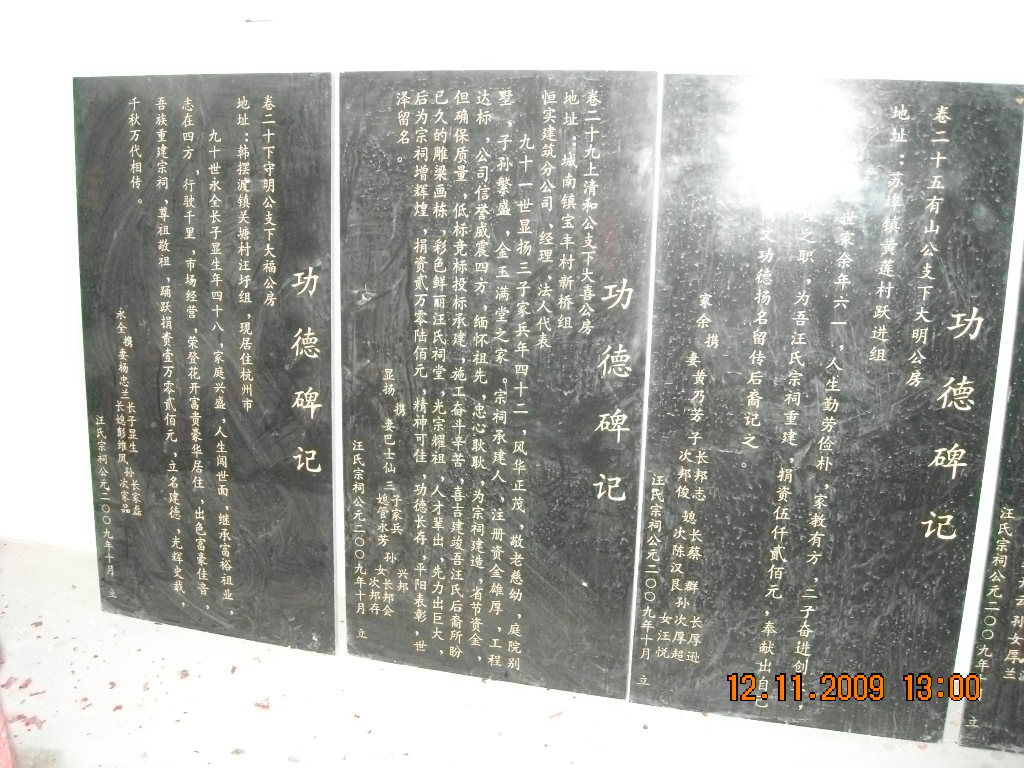 孙女厚兰
汪氏宗祠公元二〇〇九年
立
功德碑记
卷二十五有山公支下大明公房
地址：苏埠镇黄莲村跃进组
世家余年六一，人生勤劳俭朴，家教有方，二子奋进创，
之职，为吾汪氏宗祠重建，捐资伍仟贰佰元，奉献出自己
文功德扬名留传后裔记之。
家余携
长邦志 长蔡群 长厚逊
妻黄乃芳 子次邦俊 媳次陈汉艮 孙次厚超
女汪悦
汪氏宗祠公元二〇〇九年十月 立
功德碑记
卷二十九上清和公支下大喜公房
地址：城南镇宝丰村新桥组
恒实建筑分公司，经理，法人代表
九十一世显扬三子家兵年四十二，风华正茂，敬老慈幼，庭院别
墅，子孙繁盛，金玉满堂之家。宗祠承建人，注册资金雄厚，工程
达标，公司信誉威震四方，缅怀祖先，忠心耿耿，为宗祠建造，省节资金，
但确保质量，低标竞标投标承建，施工奋斗辛苦，喜吉建竣吾汪氏后裔所盼
已久的雕梁画栋，彩色鲜丽汪氏祠堂，光宗耀祖，人才辈出，先力出巨大，
后为宗祠增辉煌，捐资贰万零陆佰元，精神可佳，功德长存，平阳表彰，世
泽留名。
兴邦
显扬携 子家兵 孙长邦会
妻巴士仙三媳管永芳 女次邦存
汪氏宗祠公元二〇〇九年十月 立
功德碑记
卷二十下守明公支下大福公房
地址：韩摆渡镇关塘村汪圩组，现居住杭州市
九十世永全长子显生年四十八，家庭兴盛，人生闯世面，继承富裕祖业，
志在四方，行驶千里，市场经营，荣登花开富贵豪华居住，出色富豪佳音，
吾族重建宗祠，尊祖敬祖，踊跃捐资壹万零贰佰元，立名建德，光辉史载，
千秋万代相传。
长子显生 长家磊
永全携妻杨忠兰长媳彭维凤 孙次家品
汪氏宗祠公元二〇〇九年十月 立
12.11.2009 13:00